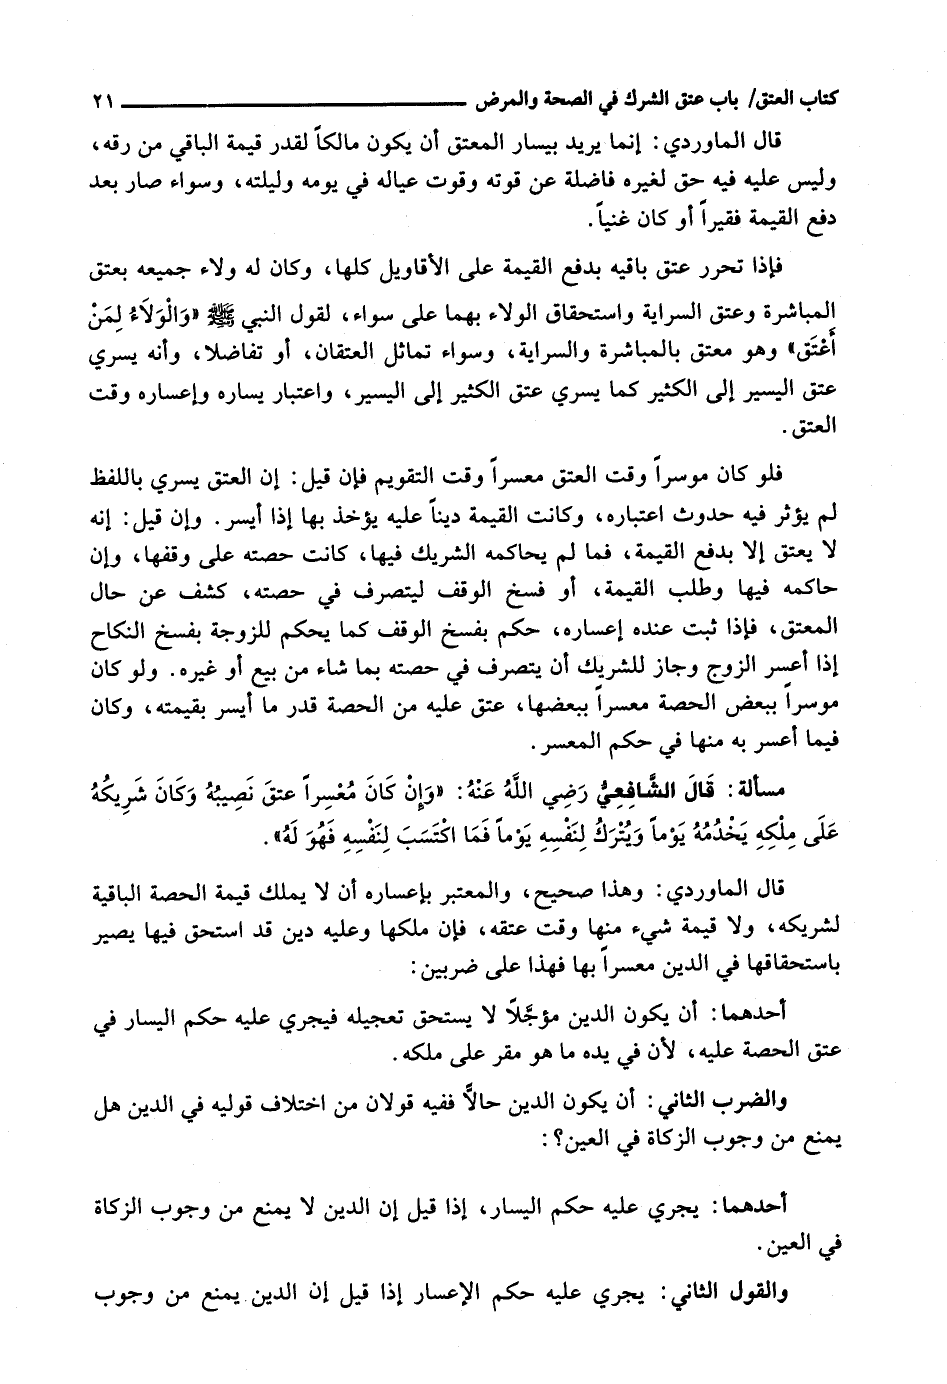 كتاب العتق/ باب عتق الشرك في الصحة والمرض ٢١
قال الماوردي: إنما يريد بيسار المعتق أن يكون مالكاً لقدر قيمة الباقي من رقه،
وليس عليه فيه حق لغيره فاضلة عن قوته وقوت عياله في يومه وليلته، وسواء صار بعد
دفع القيمة فقيراً أو كان غنياً.
فإذا تحرر عتق باقيه بدفع القيمة على الأقاويل كلها، وكان له ولاء جميعه بعتق
المباشرة وعتق السراية واستحقاق الولاء بهما على سواء، لقول النبي ﷺ «وَالْوَلَاءُ لِمَنْ
أَعْتَق» وهو معتق بالمباشرة والسراية، وسواء تماثل العتقان، أو تفاضلا، وأنه يسري
عتق اليسير إلى الكثير كما يسري عتق الكثير إلى اليسير، واعتبار يساره وإعساره وقت
العتق.
فلو كان موسراً وقت العتق معسراً وقت التقويم فإن قيل: إن العتق يسري باللفظ
لم يؤثر فيه حدوث اعتباره، وكانت القيمة ديناً عليه يؤخذ بها إذا أيسر. وإن قيل: إنه
لا يعتق إلا بدفع القيمة، فما لم يحاكمه الشريك فيها، كانت حصته على وقفها، وإن
حاكمه فيها وطلب القيمة، أو فسخ الوقف ليتصرف في حصته، كشف عن حال
المعتق، فإذا ثبت عنده إعساره، حكم بفسخ الوقف كما يحكم للزوجة بفسخ النكاح
إذا أعسر الزوج وجاز للشريك أن يتصرف في حصته بما شاء من بيع أو غيره. ولو كان
موسراً ببعض الحصة معسراً ببعضها، عتق عليه من الحصة قدر ما أيسر بقيمته، وكان
فيما أعسر به منها في حكم المعسر.
مسألة: قَالَ الشَّافِعِيُّ رَضِي اللَّهُ عَنْهُ: «وَإِنْ كَانَ مُعْسِراً عتقَ نَصِيبُهُ وَكَانَ شَرِيكُهُ
عَلَى مِلْكِهِ يَخْدُمُهُ يَوْماً وَيُتْرَكُ لِنَفْسِهِ يَوْماً فَمَا اكْتَسَبَ لِنَفْسِهِ فَهُوَ لَهُ».
قال الماوردي: وهذا صحيح، والمعتبر بإعساره أن لا يملك قيمة الحصة الباقية
لشريكه، ولا قيمة شيء منها وقت عتقه، فإن ملكها وعليه دين قد استحق فيها يصير
باستحقاقها في الدين معسراً بها فهذا على ضربين:
أحدهما: أن يكون الدين مؤجَّلاً لا يستحق تعجيله فيجري عليه حكم اليسار في
عتق الحصة عليه، لأن في يده ما هو مقر على ملكه.
والضرب الثاني: أن يكون الدين حالاًّ ففيه قولان من اختلاف قوليه في الدين هل
يمنع من وجوب الزكاة في العين؟:
أحدهما: يجري عليه حكم اليسار، إذا قيل إن الدين لا يمنع من وجوب الزكاة
في العين.
والقول الثاني: يجري عليه حكم الإعسار إذا قيل إن الدين يمنع من وجوب